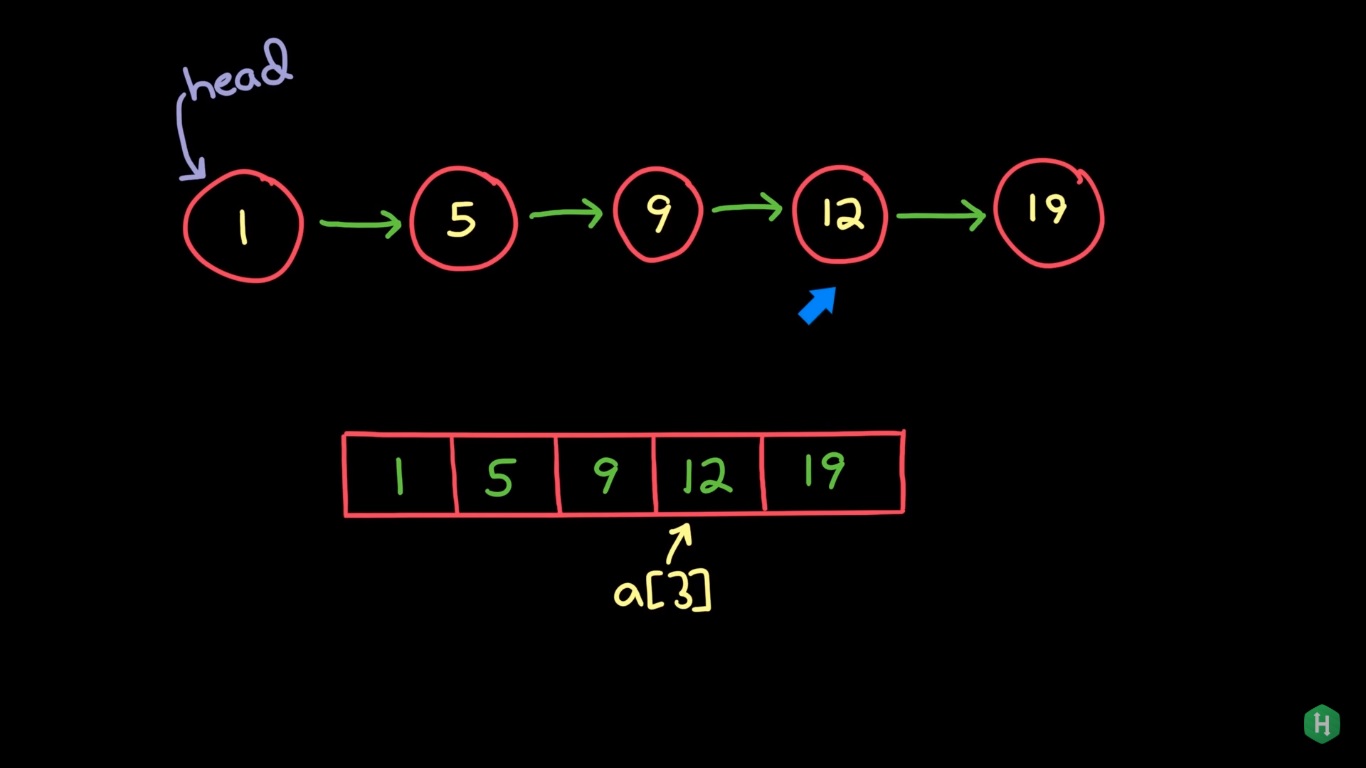 head
1 5 9 12 19
1 5 9 12 19
a[3]
H